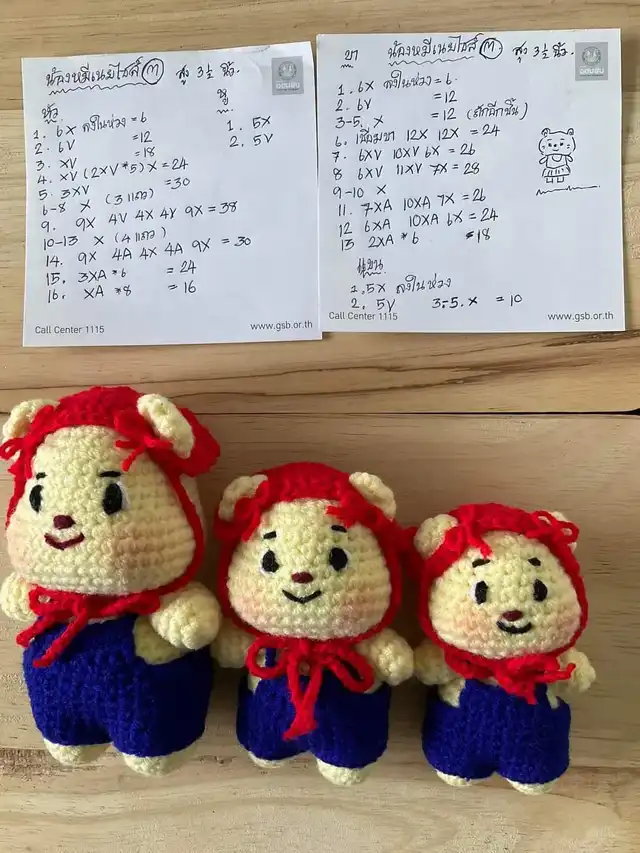 น้องหมีเนยไซส์ ๓ สูง 3 ½ นิ้ว.
หัว
1. 6X ลงในห่วง = 6
2. 6V = 12
3. XV = 18
4. XV (2XV*5) X = 24
5. 3XV = 30
6-8 X (3 แถว)
9. 9X 4V 4X 4V 9X = 38
10-13 X (4 แถว)
14. 9X 4A 4X 4A 9X = 30
15. 3XA *6 = 24
16. XA *8 = 16
หู
1. 5X
2. 5V
ออมสิน
Call Center 1115 www.gsb.or.th
ขา น้องหมีเนยไซส์ ๓ สูง 3 ½ นิ้ว.
1. 6X ลงในห่วง = 6
2. 6V = 12
3-5. X = 12 (ถักอีกชิ้น)
6. เชื่อมขา 12X 12X = 24
7. 6XV 10XV 6X = 26
8 6XV 11XV 7X = 28
9-10 X
11. 7XA 10XA 7X = 26
12 6XA 10XA 6X = 24
13 2XA *6 = 18
แขน
1. 5X ลงในห่วง
2. 5V 3-5. X = 10
ออมสิน
Call Center 1115 www.gsb.or.th